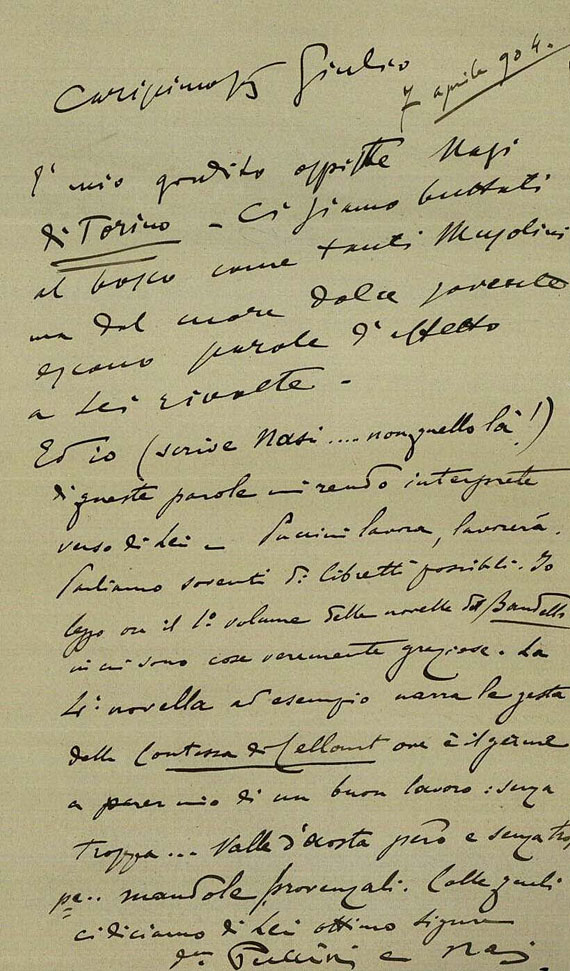 Carissimo Giulio
7 aprile 904.
È mio gradito ospite Nasi
di Torino - Ci siamo buttati
al bosco come tanti Musolini
ma dal cuore dolce sovente
escono parole d'affetto
a Lei rivolte -
Ed io (scrive Nasi .... non quello là!)
di queste parole mi rendo interprete
verso di Lei - Puccini lavora, lavorerà.
Parliamo sovente di libretti possibili. Io
leggo ora il 1° volume delle novelle del Bandello
in cui sono cose veramente graziose. La
4ª novella ad esempio narra le gesta
della Contessa di Cellant ove è il germe
a parer mio di un buon lavoro: senza
troppa... Valle d'Aosta però e senza trop
pe.. mandole provenzali. Colle quali
ci diciamo di Lei ottimo signore
Puccini e Nasi